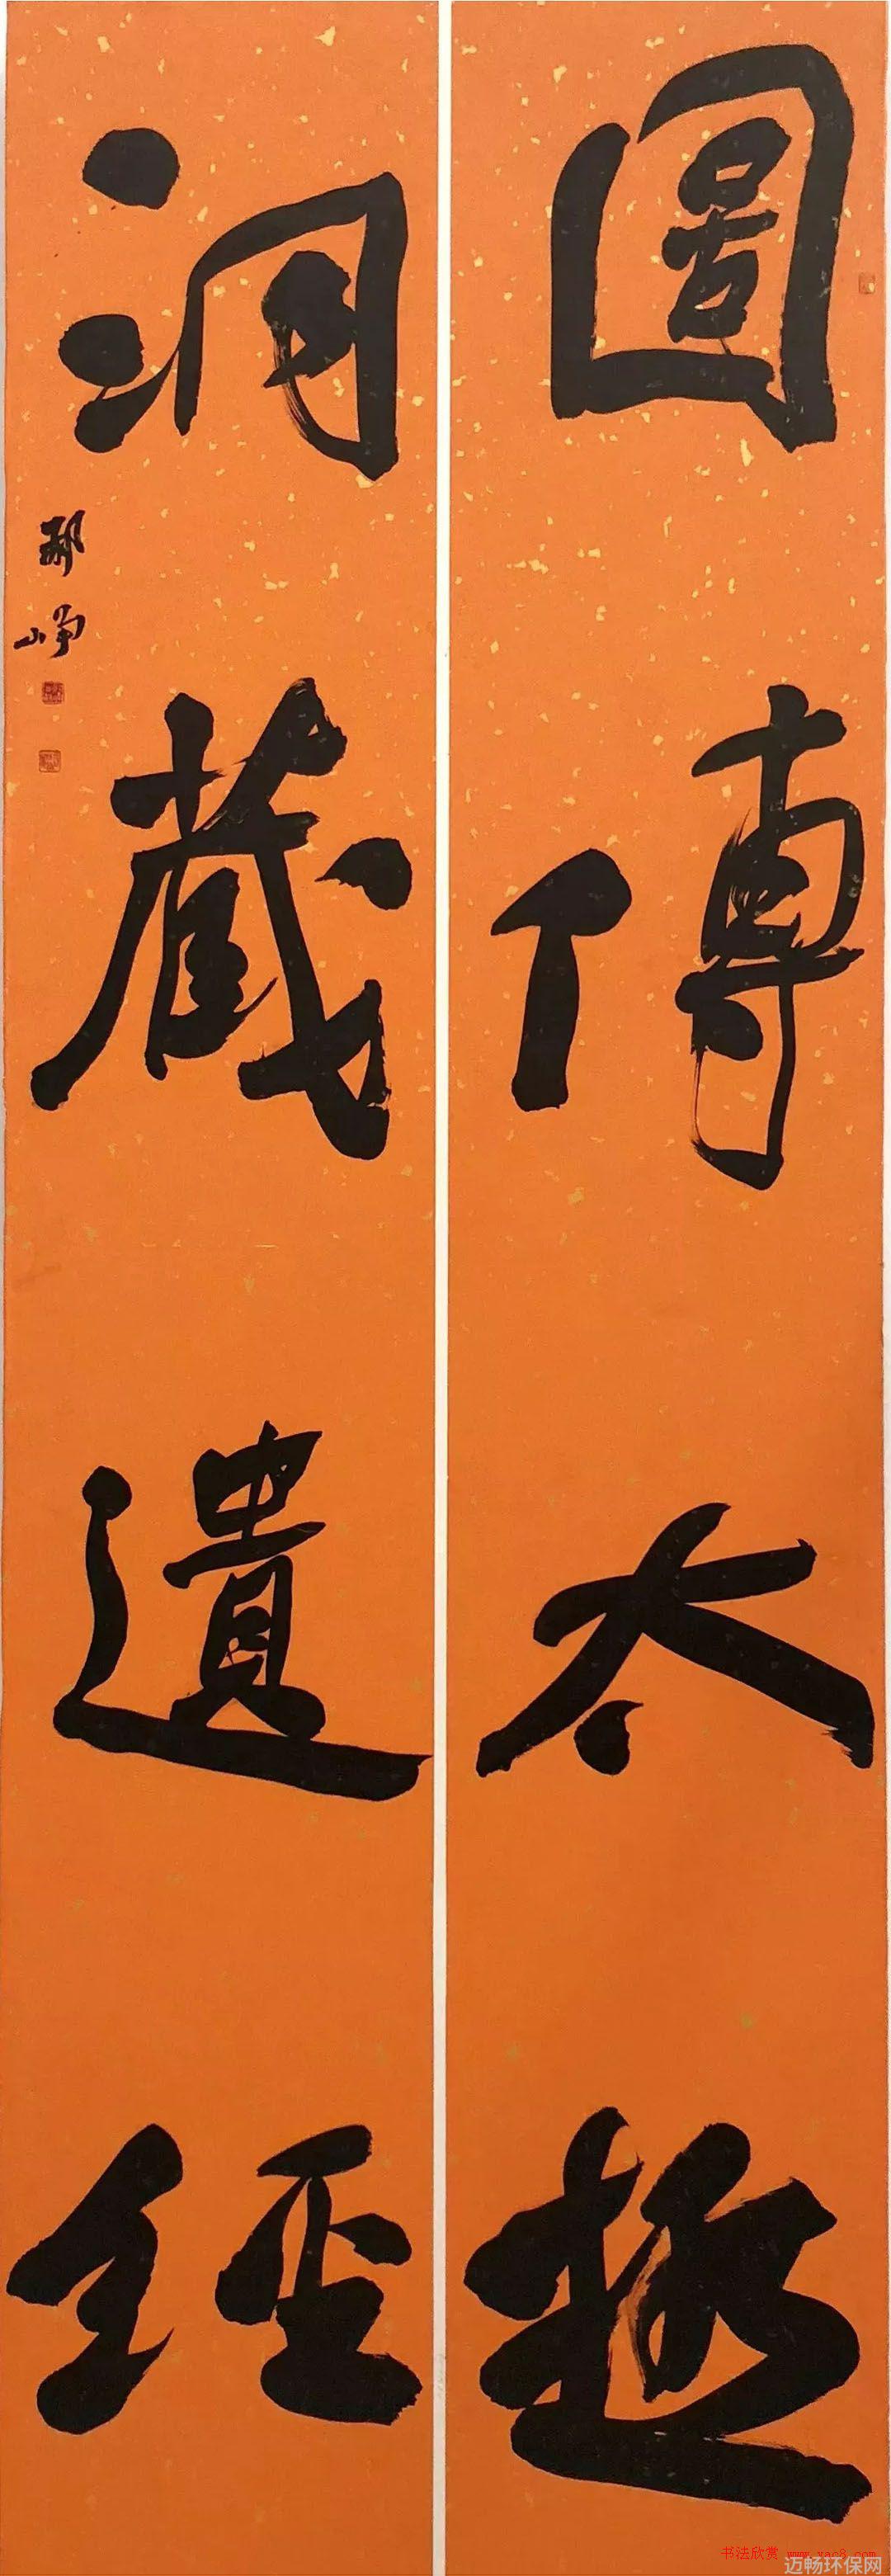 圖傳太極
洞藏遺經
書法欣赏 www.yac8.com
迈畅环保网